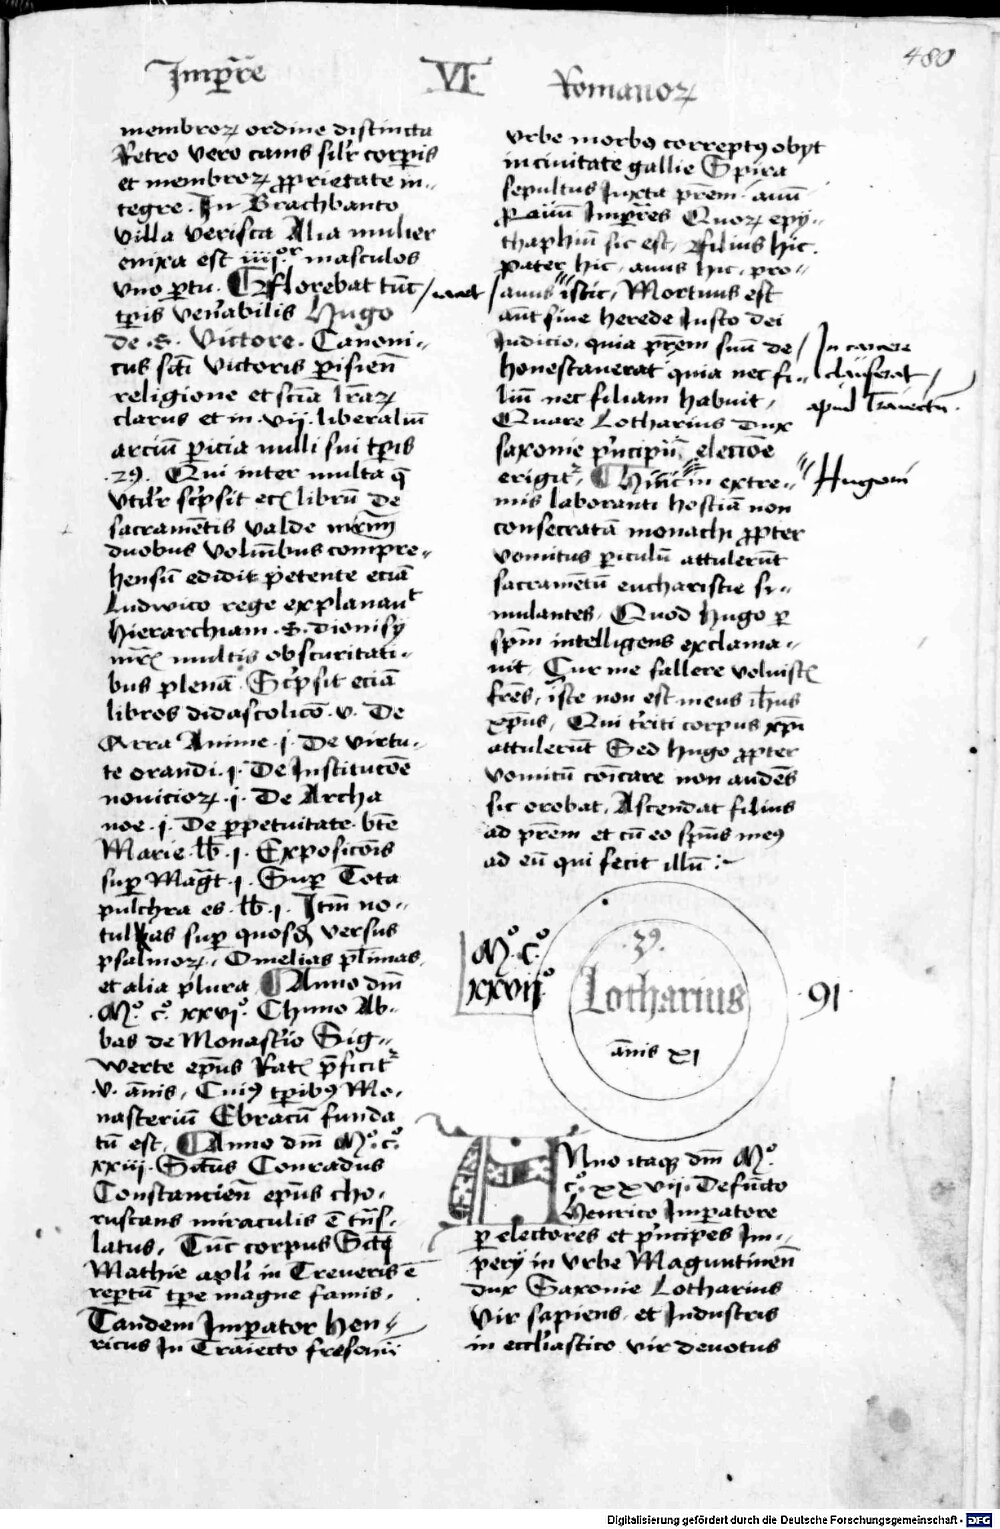 480
Imp̄re VI Romanoꝝ
membroꝝ ordine distincta
Retro vero canis silr̄ corꝑis
et membroꝝ ꝓprietate in-
tegre. In Brachbanto
villa verisca Alia mulier
enixa est iiijor masculos
vno ꝑtu. Florebat tūc
tꝑis ven̄abilis Hugo
de .S. Victore. Canoni-
cus scti Victoris ꝑisien̄
religione et scīa lrāꝝ
clarus et in .vij. liberaliū
arciū ꝑicia nulli sui tꝑis
.29. Qui inter multa q̄
vtilr̄ scp̄sit etc̄ librū De
sacramētis valde
duobus volūībus compre-
hensū edidit petente eciā
Ludwico rege explanauit
hierarchiam .S. dionisy
multis obscuritati-
bus plenā. Scp̄sit eciā
libros didascolicō .v. De
Arra Anime .j. De virtu-
te orandi .j. De Institucōe
nouicioꝝ .j. De Archa
noe .j. De ꝑpetuitate bt̄e
Marie lb̄ .j. Exposicōis
suꝑ Magt̄ .j. Suꝑ Tota
pulchra es lb̄ .j. Itm̄ no-
tulas suꝑ quosd̄ versus
psalmoꝝ. Omelias pl̄imas
et alia plura. Anno dm̄
.Mo. co. xxvio. Chuno Ab-
bas de Monast̄io Sig-
werte ep̄us Rat̄ p̄ficitr
.v. ānis, Cuiꝰ tꝑibꝰ Mo-
nasterium Ebracū funda
tū est, Anno dm̄ Mo. co.
xxiij. Sctūs Conradus
Constantien̄ ep̄us cho-
ruscans miraculis ē trn̄s-
latus, Tūc corpus Scti
Mathie apl̄i in Treueris ē
reꝑtū tꝑe magne famis.
Tandem Imꝑator Hen-
ricus In Traiecto fresonū
vrbe morbo correptꝰ obyt
in ciuitate gallie Spira
sepultus Iuxta prēm auū
ꝓauū Imꝑres Quoꝝ epy-
thaphiū sic est, Filius hic.
pater hic, auus hic, pro-
auus istic, Mortuus est
aūt sine herede Iusto dei
Iudicio, quia prēm suū de
In carcere
clauserat
apud Traiectū.
honestauerat quia nec fi-
liū nec filiam habuit,
Quare Lotharius dux
saxonie pⁱncipū electiōe
erigitr, Huic in extre-
Hugoni
mis laboranti hostiā non
consecratā monachi ꝓpter
vomitus ꝑiculū attulerūt
sacramētū eucharistie si-
mulantes, Quod hugo ꝑ
spm̄ intelligens exclama-
uit, Cur me fallere voluistꝭ
frēs, iste non est meus ih̄us
xp̄us, Qui triti corpus xpī
attulerūt Sed hugo ꝓpter
vomitū cōicare non audēs
sic orobat, Ascendat filius
ad prēm et cū eo spūs meꝰ
ad eū qui fecit illū :~
Mo. co.
xxvijo
.39.
Lotharius
ānis XI
.91.
ANno itaqꝫ dm̄ Mo.
co. xxvij. Defūcto
Henrico Imꝑatore
ꝑ electores et pⁱncipes Im-
pery in vrbe Maguntinen̄
dux Saxonie Lotharius
vir sapiens et Industris
in eccl̄iastico vir deuotus
Digitalisierung gefördert durch die Deutsche Forschungsgemeinschaft - DFG